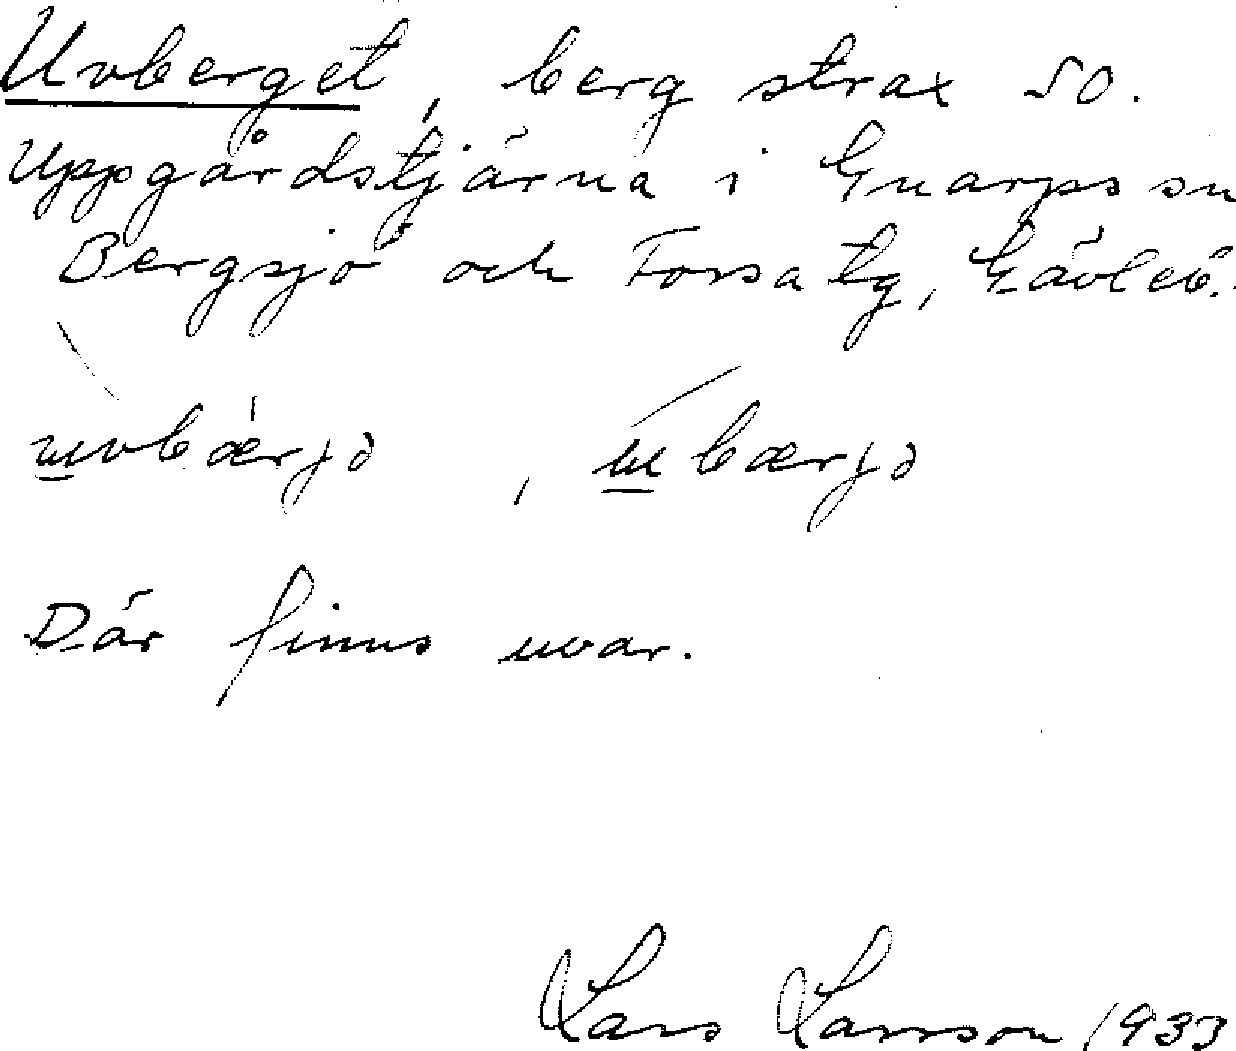 Uvberget, berg strax SO.
Uppgårdstjärna i Gnarps sn
Bergsjö och Forsa tg, Gävleb.
uvbærjə, ubærjə
Där finns uvar.
Lars Larsson 1933